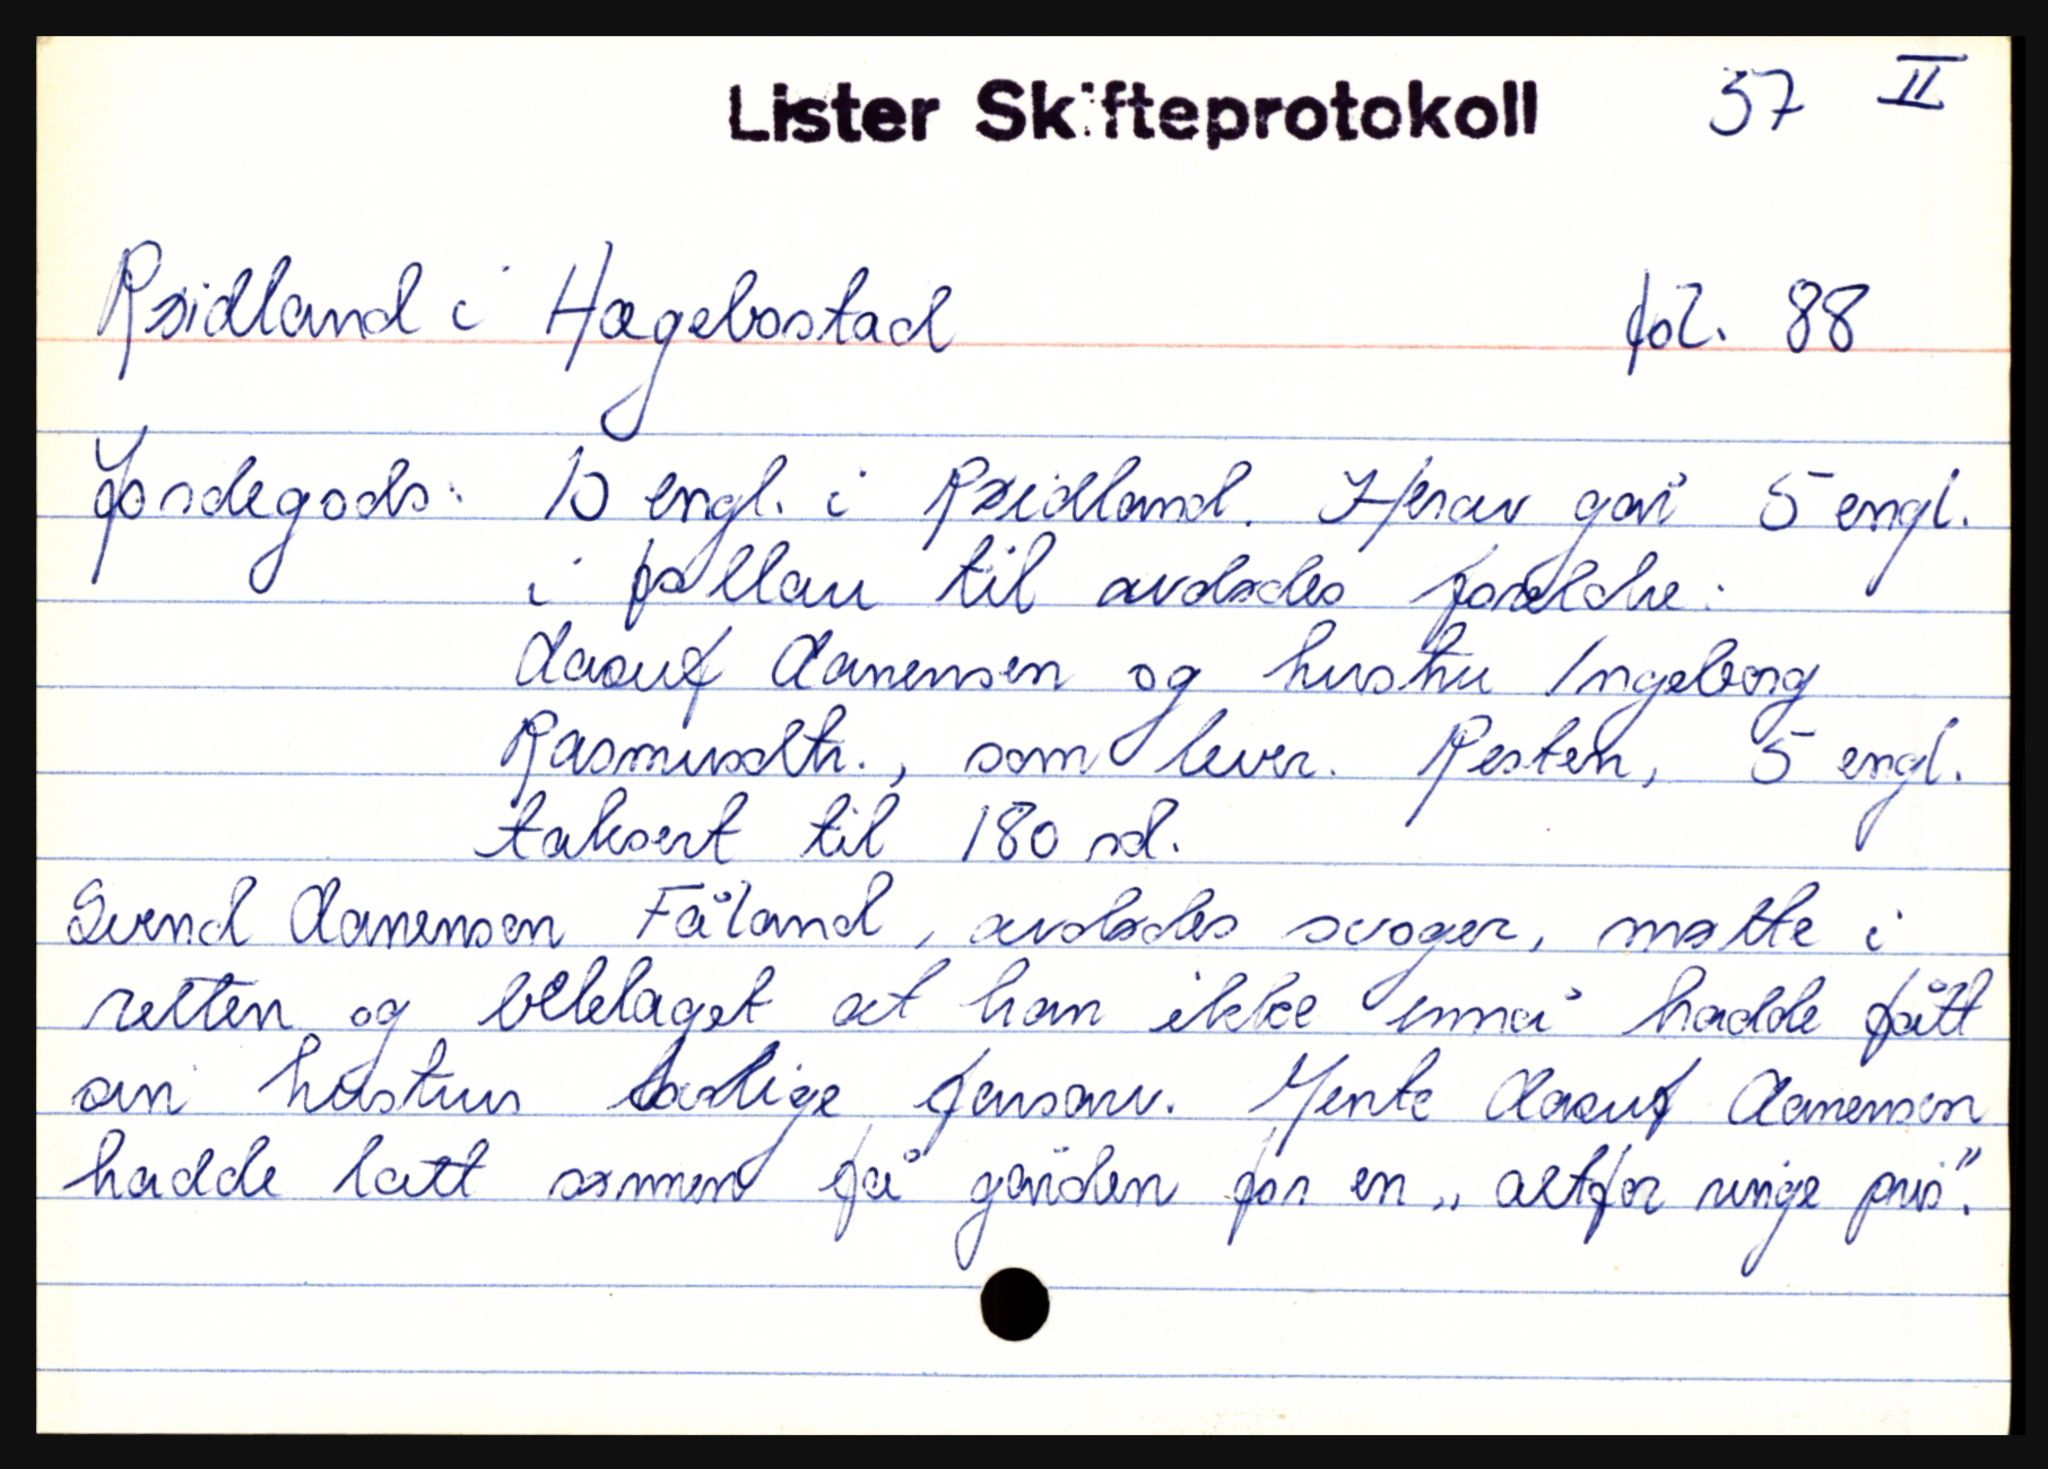 Lister Skifteprotokoll 37 II
Røidland i Hægebostad fol. 88
Jordegods: 10 engl. i Røidland. Herav går 5 engl.
i follau til avdødes foreldre:
Aasuf Aanensen og hustru Ingeborg
Rasmusdtr., som lever. Resten, 5 engl.
taksert til 180 rd.
Svend Aanensen Fåland, avdødes svoger, møtte i
retten og beklaget at han ikke ennå hadde fått
sin hustrus lovlige farsarv. Mente Aasuf Aanensen
hadde latt sønnen få gården for en „altfor ringe pris".